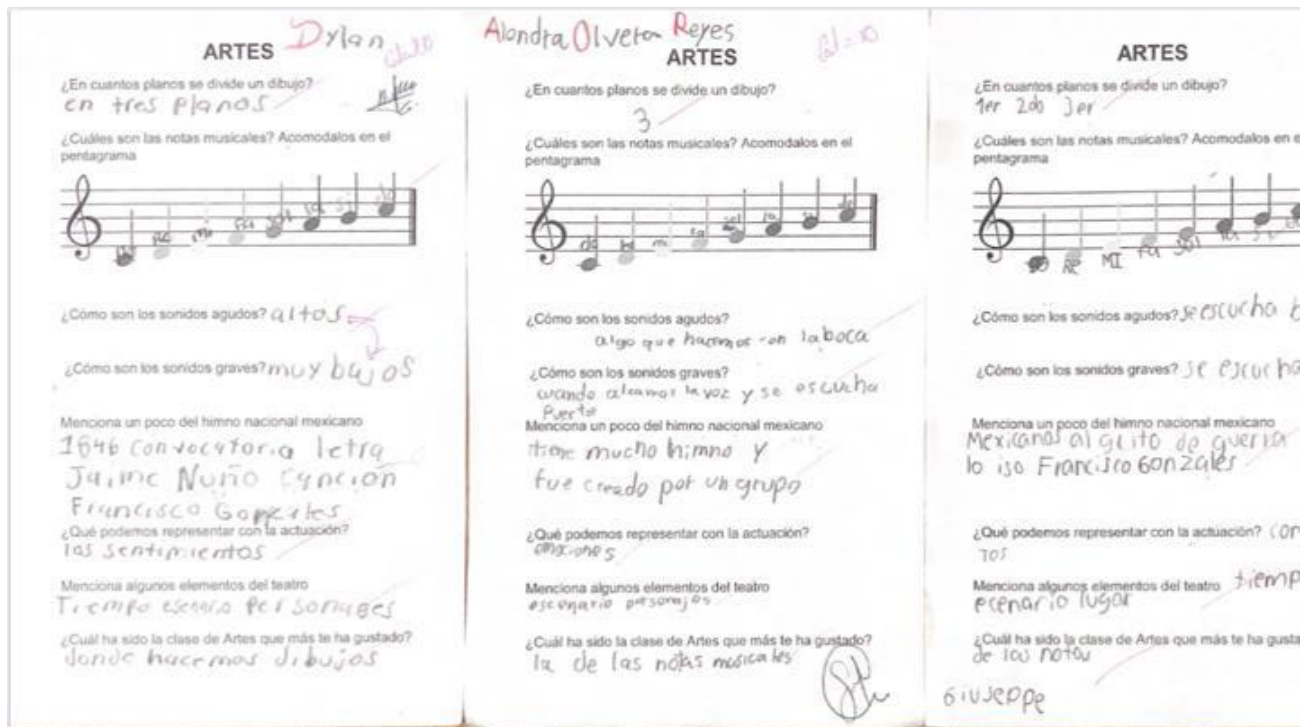 Dylan
ARTES
¿En cuantos planos se divide un dibujo?
en tres planos
¿Cuáles son las notas musicales? Acomodalos en el
pentagrama
do re mi fa sol la si do
¿Cómo son los sonidos agudos? altos
¿Cómo son los sonidos graves? muy bajos
Menciona un poco del himno nacional mexicano
1846 convocatoria letra
Jaime Nuño canción
Francisco Gonzales
¿Qué podemos representar con la actuación?
los sentimientos
Menciona algunos elementos del teatro
Tiempo esenario personages
¿Cuál ha sido la clase de Artes que más te ha gustado?
donde hacemos dibujos
Alondra Olvera Reyes
ARTES
¿En cuantos planos se divide un dibujo?
3
¿Cuáles son las notas musicales? Acomodalos en el
pentagrama
do re mi fa sol la si do
¿Cómo son los sonidos agudos?
algo que hacemos con la boca
¿Cómo son los sonidos graves?
cuando alzamos la voz y se escucha
Puerte
Menciona un poco del himno nacional mexicano
tiene mucho himno y
fue creado por un grupo
¿Qué podemos representar con la actuación?
Menciona algunos elementos del teatro
escenario personajes
¿Cuál ha sido la clase de Artes que más te ha gustado?
la de las notas musicales
ARTES
¿En cuantos planos se divide un dibujo?
1er 2do 3er
¿Cuáles son las notas musicales? Acomodalos en e
pentagrama
DO RE MI Fa SOl la Si
¿Cómo son los sonidos agudos? se escucha
¿Cómo son los sonidos graves? se escucha
Menciona un poco del himno nacional mexicano
Mexicanos al grito de guerra
lo iso Francisco Gonzales
¿Qué podemos representar con la actuación?
Menciona algunos elementos del teatro tiemp
ecenario lugar
¿Cuál ha sido la clase de Artes que más te ha gusta
de las notas
Giuseppe